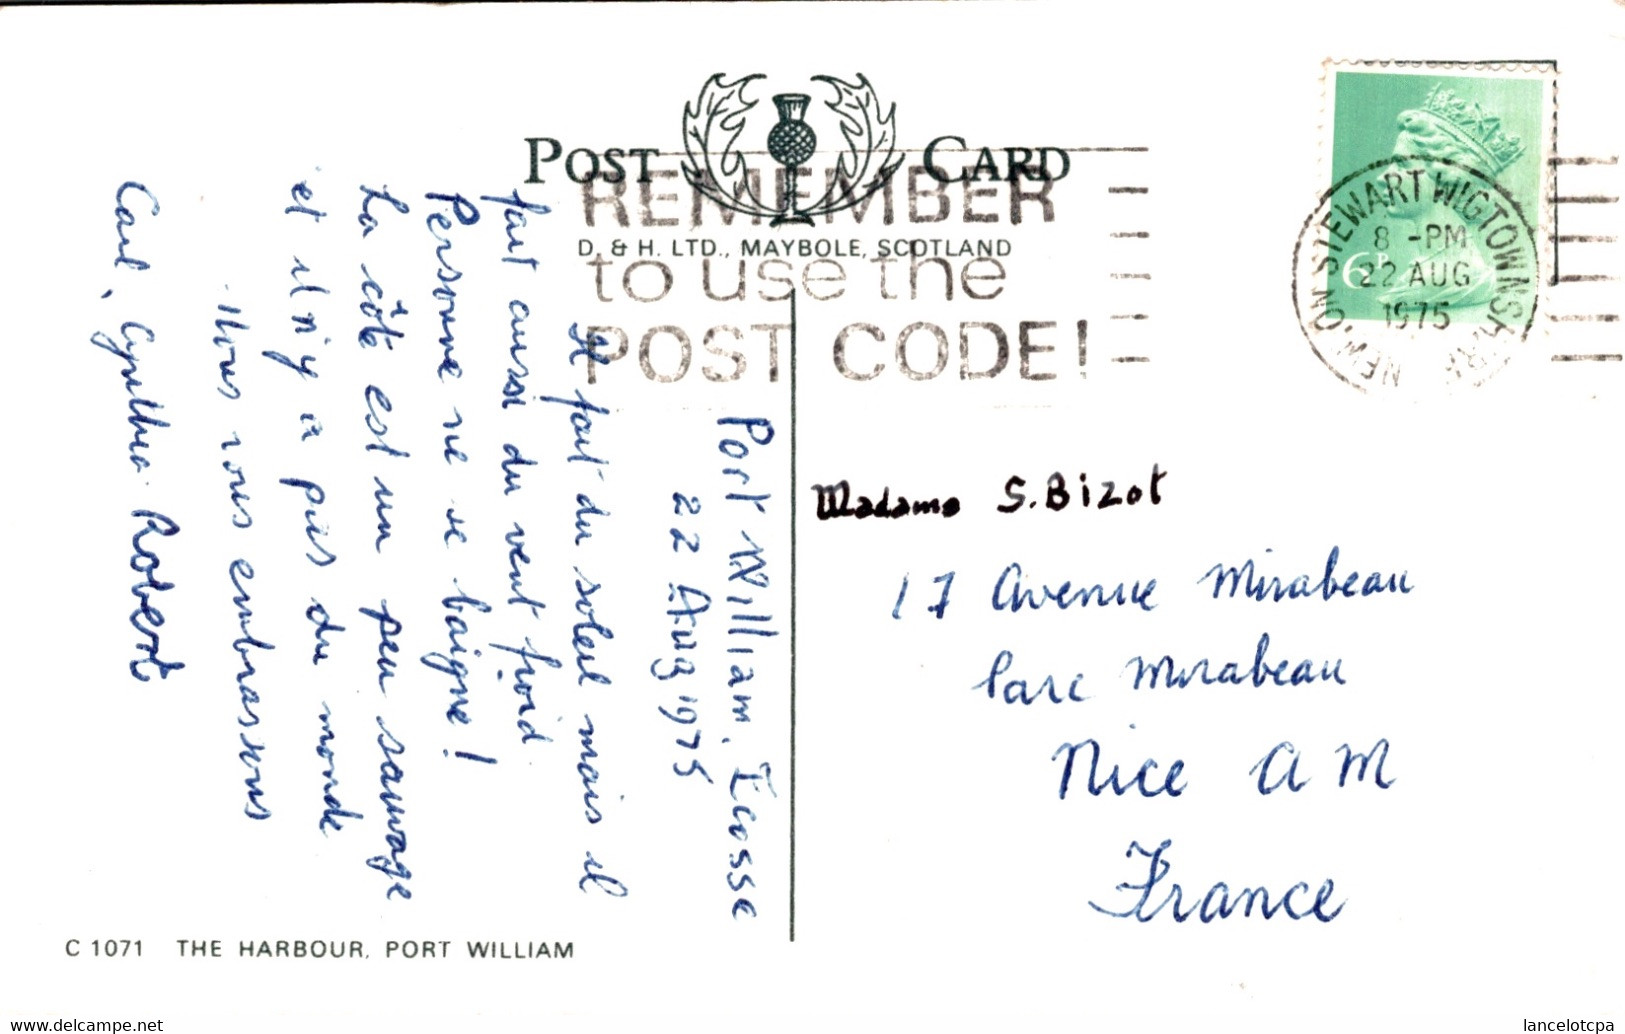 POST CARD
D. & H. LTD., MAYBOLE, SCOTLAND
REMEMBER
to use the
POST CODE!
NEWTON STEWART WIGTOWNSHIRE
8 -PM
22 AUG
1975
6P
Port William. Ecosse
22 Aug 1975
Il fait du soleil mais il
fait aussi du vent froid.
Personne ne se baigne!
La côte est un peu sauvage
et il n'y a pas du monde
Nous vous embrassons
Carl, Cynthia Robert
Madame S. Bizot
17 Avenue Mirabeau
Parc Mirabeau
Nice A M
France
C 1071 THE HARBOUR, PORT WILLIAM
https://www.delcampe.net
lancelotcpa